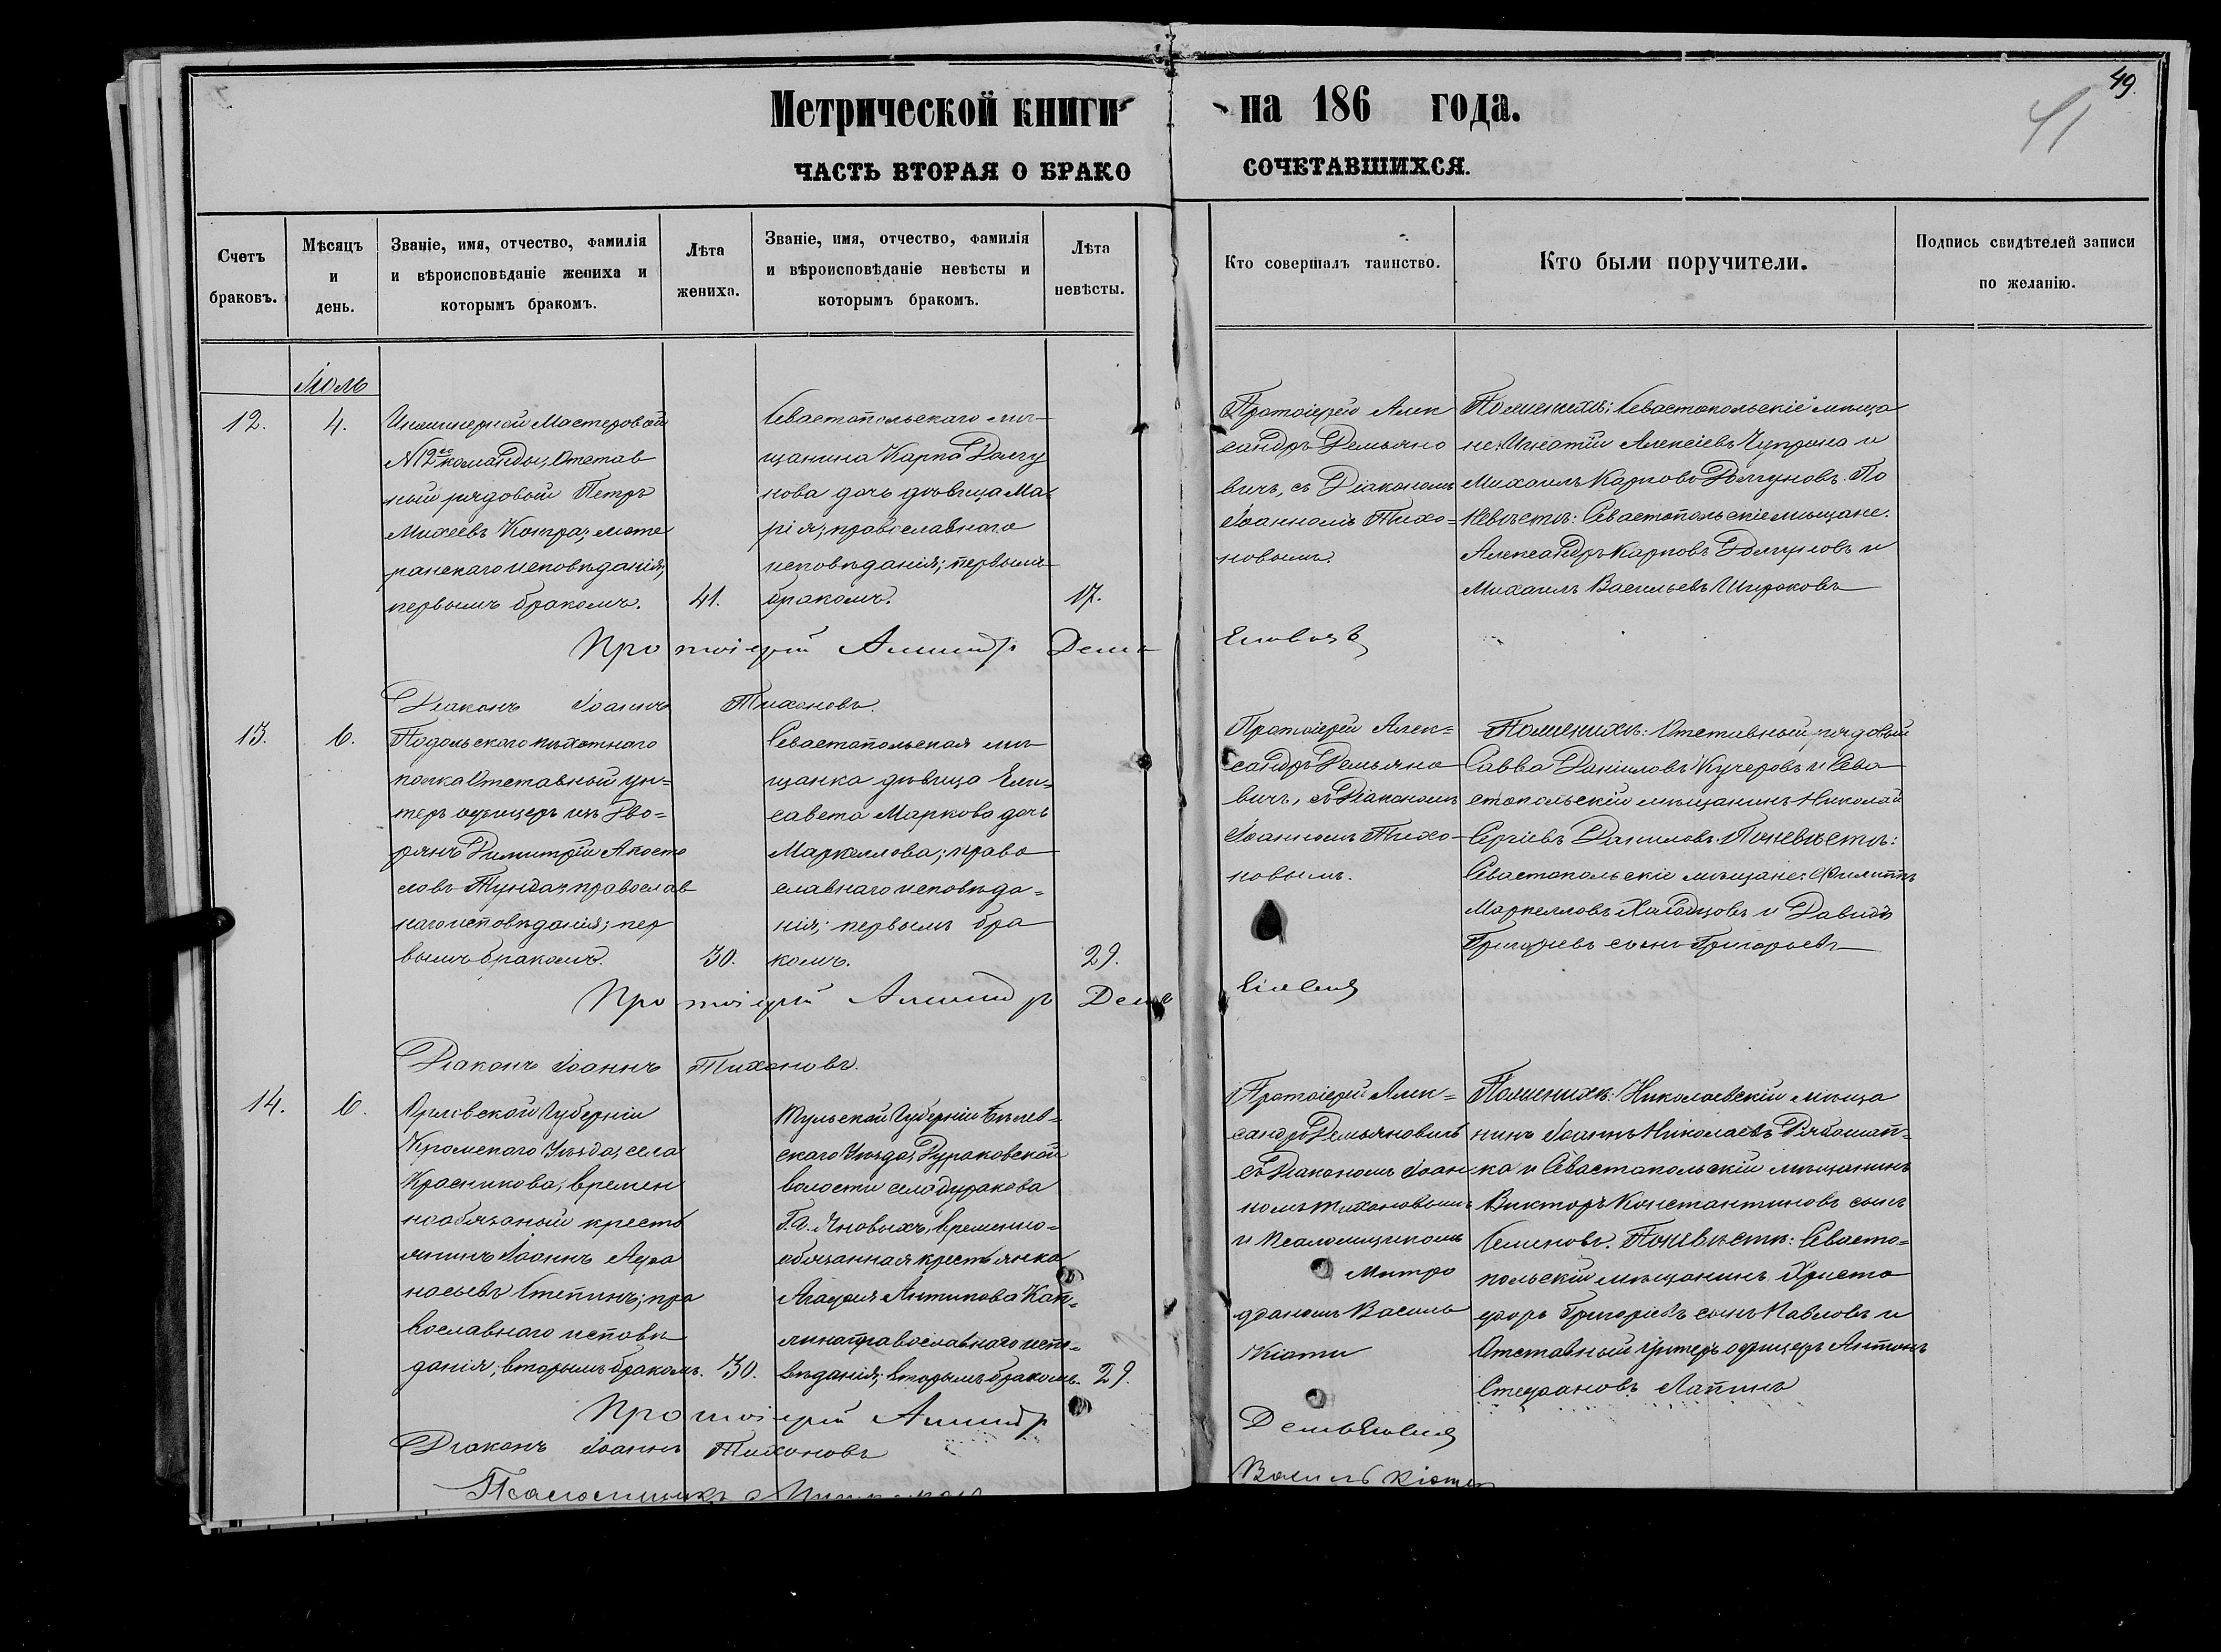 49.
41
Метрической книги на 186 года.
ЧАСТЬ ВТОРАЯ О БРАКОСОЧЕТАВШИХСЯ.
Счетъ браковъ.
Мѣсяцъ и день.
Званіе, имя, отчество, фамилія
и вѣроисповѣданіе жениха и
которымъ бракомъ.
Лѣта
жениха.
Званіе, имя, отчество, фамилія
и вѣроисповѣданіе невѣсты и
которымъ бракомъ.
Лѣта
невѣсты.
Кто совершалъ таинство.
Кто были поручители.
Подпись свидѣтелей записи
по желанію.
Іюль
12.
4.
Инжинерной Мастеровой
№ 12й команды, Отстав
ный рядовой Петръ
Михеевъ Контра; люте
ранскаго исповѣданія,
первымъ бракомъ.
41.
Севастопольскаго мѣ-
щанина Карпа Долгу
нова дочь дѣвица Ма-
рія; православнаго
исповѣданія; первымъ
бракомъ.
17.
Протоіерей Алек
сандръ Демьяно
вичъ, съ Діакономъ
Іоанномъ Тихо=
новымъ.
По женихѣ: Севастопольскіе мѣща
не: Игнатій Алексѣевъ Чуприна и
Михаилъ Карповъ Долгуновъ. По
невѣстѣ: Севастопольскіе мѣщане.
Александръ Карповъ Долгуновъ и
Михаилъ Васильевъ Широковъ
Протоіерей Александръ Демьяновичъ
Діаконъ Іоаннъ Тихоновъ.
13.
6.
Подольскаго пѣхотнаго
полка Отставный ун=
теръ офицеръ изъ Дво=
рянъ Димитрій Апосто
ловъ Тундан православ
наго исповѣданія; пер
вымъ бракомъ.
30.
Севастопольская мѣ
щанка дѣвица Ели=
савета Маркова дочь
Маркеллова; право
славнаго исповѣда=
нія; первымъ бра
комъ.
29.
Протоіерей Алек=
сандръ Демьяно
вичъ, съ Діакономъ
Іоанномъ Тихо-
новымъ.
По женихѣ: Отставный рядовый
Савва Даниловъ Кучеровъ и Сева
стопольскій мѣщанинъ Николай
Сергіевъ Даниловъ. По невѣстѣ:
Севастопольскіе мѣщане: Филиппъ
Маркелловъ и Давидъ
Григорьевъ сынъ Григорьевъ
Протоіерей Александръ Демьяновичъ
Діаконъ Іоаннъ Тихоновъ.
14.
6.
Орловской Губерніи
Кромскаго Уѣзда, села
Красникова, времен
нообязаной кресть
янинъ Іоаннъ Афа
насьевъ Степинъ; пра
вославнаго исповѣ
данія; вторымъ бракомъ.
30.
Тульской Губерніи Бѣлев=
скаго Уѣзда, Дураковской
волости села Дуракова
Г.а. Яновыхъ, временно=
обязанная крестьянка
Агафія Антипова Кап=
лина православнаго испо=
вѣданія; вторымъ бракомъ.
29.
Протоіерей Алек=
сандръ Демьяновичъ
съ Діакономъ Іоан
номъ Тихоновымъ
и Псаломщикомъ
Митро
фаномъ Василь
Кіоти
По женихѣ: Николаевскій мѣща
нинъ Іоаннъ Николаевъ Рябошап=
ка и Севастопольскій мѣщанинъ
Викторъ Константиновъ сынъ
Семеновъ. По невѣстѣ: Севасто=
польскій мѣщанинъ Христо
форъ Григорьевъ сынъ Павловъ и
Отставный унтеръ офицеръ Антонъ
Стефановъ Лапинъ
Протоіерей Александръ Демьяновичъ
Діаконъ Іоаннъ Тихоновъ
Псаломщикъ